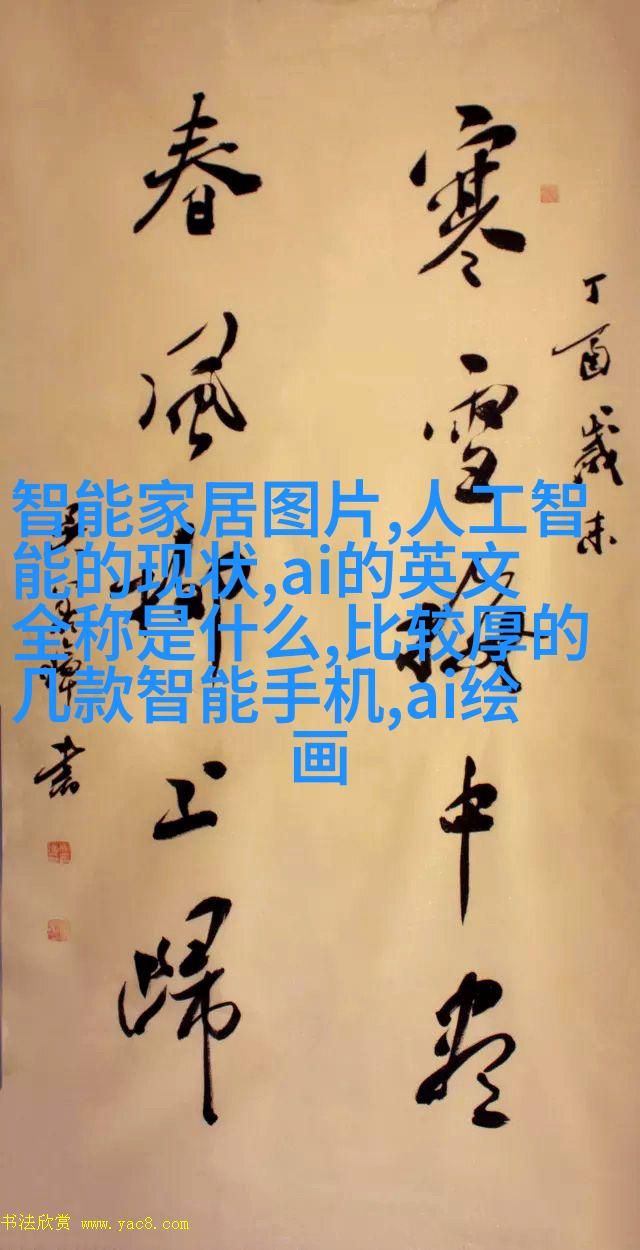 丁酉歲末
寒雪梅中尽
春風柳上歸
書
智能家居图片,人工智
能的现状,ai的英文
全称是什么,比较厚的
几款智能手机,ai绘
画
书法欣赏 www.yac8.com